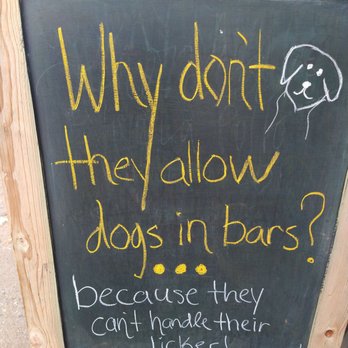 Why don't
they allow
dogs in bars?
...
because they
can't handle their
licker!